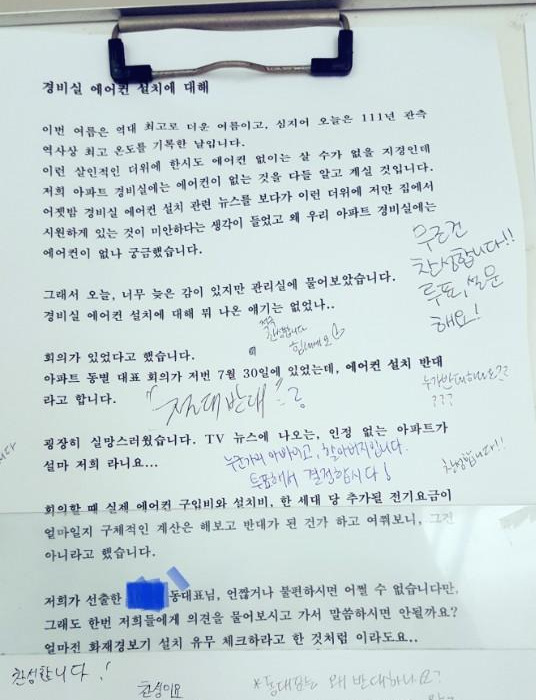 경비실 에어컨 설치에 대해
이번 여름은 역대 최고로 더운 여름이고, 심지어 오늘은 111년 관측
역사상 최고 온도를 기록한 날입니다.
이런 살인적인 더위에 한시도 에어컨 없이는 살 수가 없을 지경인데
저희 아파트 경비실에는 에어컨이 없는 것을 다들 알고 계실 것입니다.
어젯밤 경비실 에어컨 설치 관련 뉴스를 보다가 이런 더위에 저만 집에서
시원하게 있는 것이 미안하다는 생각이 들었고 왜 우리 아파트 경비실에는
에어컨이 없나 궁금했습니다.
무조건
찬성합니다!!
투표, 설문
해요!
그래서 오늘, 너무 늦은 감이 있지만 관리실에 물어보았습니다.
경비실 에어컨 설치에 대해 뭐 나온 얘기는 없었나..
찬성합니다
힘내세요
회의가 있었다고 했습니다.
아파트 동별 대표 회의가 저번 7월 30에 있었는데, 에어컨 설치 반대
라고 합니다.
"전대반대"
누가반대하나요??
???
굉장히 실망스러웠습니다. TV 뉴스에 나오는, 인정 없는 아파트가
설마 저희 라니요...
누군가의 아빠이고, 할아버지입니다.
투표해서 결정합시다!
찬성합니다!!
회의할 때 실제 에어컨 구입비와 설치비, 한 세대 당 추가될 전기요금이
얼마일지 구체적인 계산은 해보고 반대가 된 건가 하고 여쭤보니, 그건
아니라고 했습니다.
저희가 선출한 동대표님, 언짢거나 불편하시면 어쩔 수 없습니다만,
그래도 한번 저희들에게 의견을 물어보시고 가서 말씀하시면 안될까요?
얼마전 화재경보기 설치 유무 체크하라고 한 것처럼 이라도요..
찬성합니다!
찬성이요
*동대표는 왜 반대하나요?